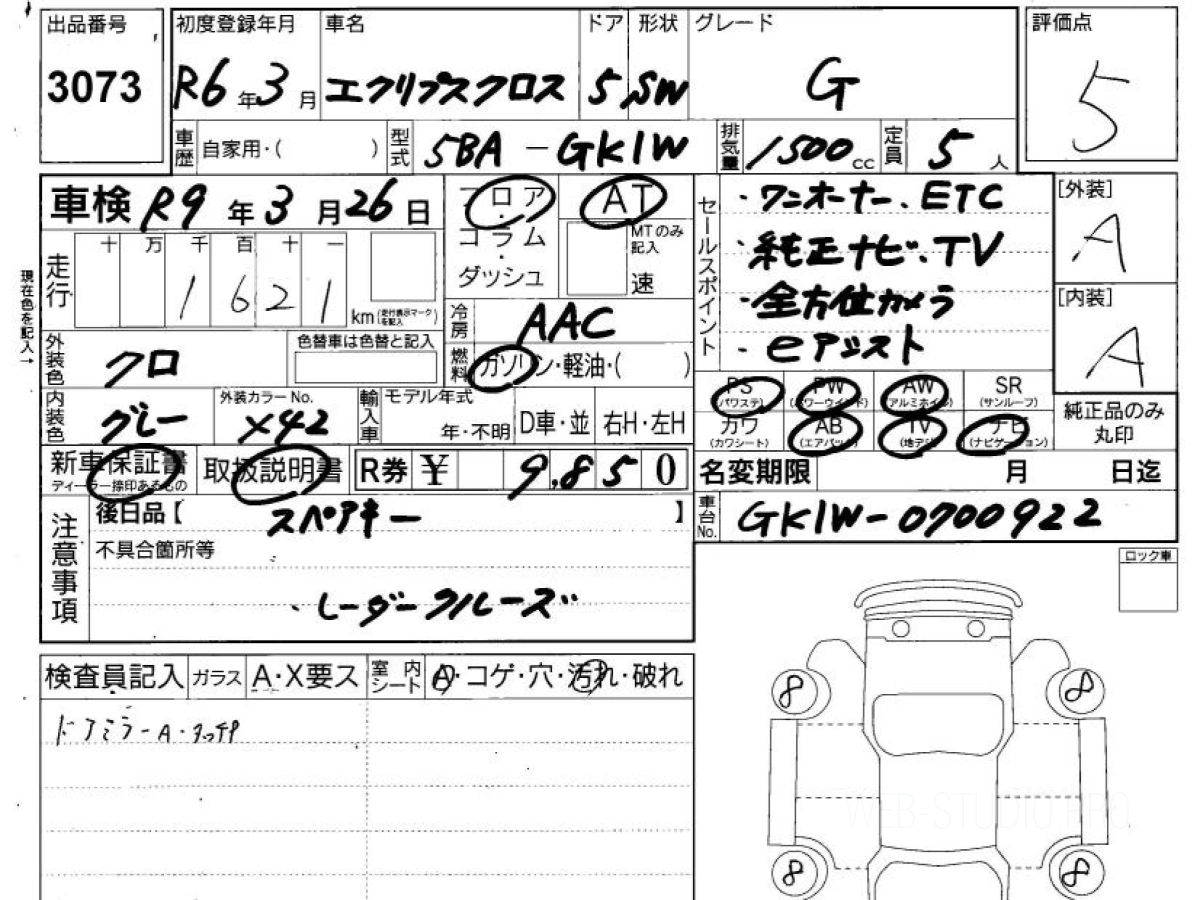 出品番号 初度登録年月 車名 ドア 形状 グレード 評価点
3073 R6年3月 エクリプスクロス 5 SW G 5
車歴 自家用・( ) 型式 5BA-GK1W 排気量 1500cc 定員 5人
車検 R9年3月26日 フロア AT セールスポイント ・ワンオーナー、ETC [外装]
コラム MTのみ記入 ・純正ナビ、TV A
ダッシュ 速
現在色を記入→ 走行 十 万 千 百 十 一
1 6 2 1 km (走行表示マークを記入) 冷房 AAC ・全方位カメラ [内装]
外装色 クロ 色替車は色替と記入 燃料 ガソリン・軽油・( ) ・eアシスト A
PS (パワステ) PW (パワーウインド) AW (アルミホイル) SR (サンルーフ)
内装色 グレー 外装カラーNo. X42 輸入車 モデル年式 年・不明 D車・並 右H・左H カワ (カワシート) AB (エアバッグ) TV (地デジ) ナビ (ナビゲーション) 純正品のみ丸印
新車保証書 ディーラー捺印あるもの 取扱説明書 R券 ¥ 9,850 名変期限 月 日迄
注意事項 後日品【 スペアキー 】 車台No. GK1W-0700922
不具合箇所等 ロック車
・レーダークルーズ
検査員記入 ガラス A・X要ス 室内シート A・コゲ・穴・汚れ・破れ
ドアミラーA・タッチP
8 8
WEB-STUDIO.PRO
8 8